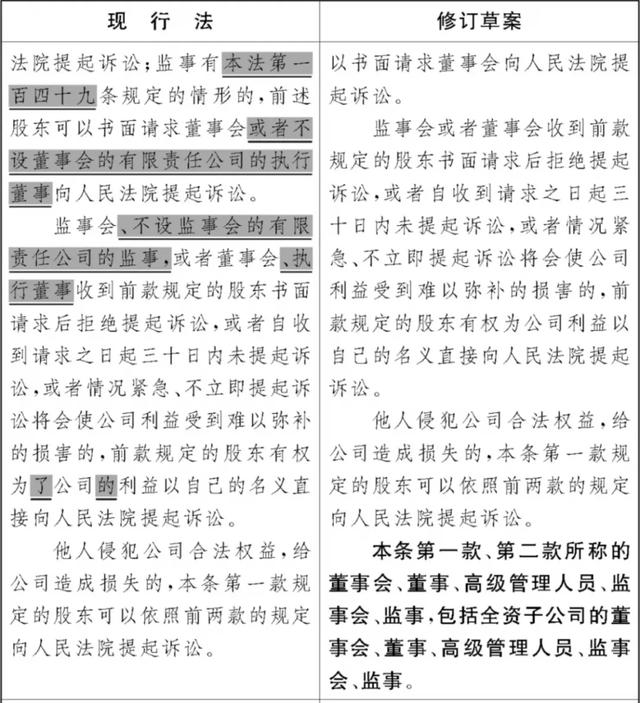 现行法
法院提起诉讼;监事有本法第一
百四十九条规定的情形的,前述
股东可以书面请求董事会或者不
设董事会的有限责任公司的执行
董事向人民法院提起诉讼。
监事会、不设监事会的有限
责任公司的监事,或者董事会、执
行董事收到前款规定的股东书面
请求后拒绝提起诉讼,或者自收
到请求之日起三十日内未提起诉
讼,或者情况紧急、不立即提起诉
讼将会使公司利益受到难以弥补
的损害的,前款规定的股东有权
为了公司的利益以自己的名义直
接向人民法院提起诉讼。
他人侵犯公司合法权益,给
公司造成损失的,本条第一款规
定的股东可以依照前两款的规定
向人民法院提起诉讼。
修订草案
以书面请求董事会向人民法院提
起诉讼。
监事会或者董事会收到前款
规定的股东书面请求后拒绝提起
诉讼,或者自收到请求之日起三
十日内未提起诉讼,或者情况紧
急、不立即提起诉讼将会使公司
利益受到难以弥补的损害的,前
款规定的股东有权为公司利益以
自己的名义直接向人民法院提起
诉讼。
他人侵犯公司合法权益,给
公司造成损失的,本条第一款规
定的股东可以依照前两款的规定
向人民法院提起诉讼。
本条第一款、第二款所称的
董事会、董事、高级管理人员、监
事会、监事,包括全资子公司的董
事会、董事、高级管理人员、监事
会、监事。